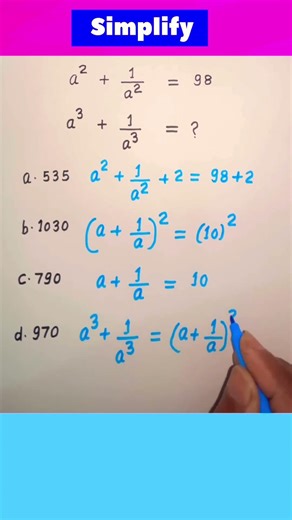 Simplify
a² + 1/a² = 98
a³ + 1/a³ = ?
a. 535 a² + 1/a² + 2 = 98 + 2
b. 1030 (a + 1/a)² = (10)²
c. 790 a + 1/a = 10
d. 970 a³ + 1/a³ = (a + 1/a)